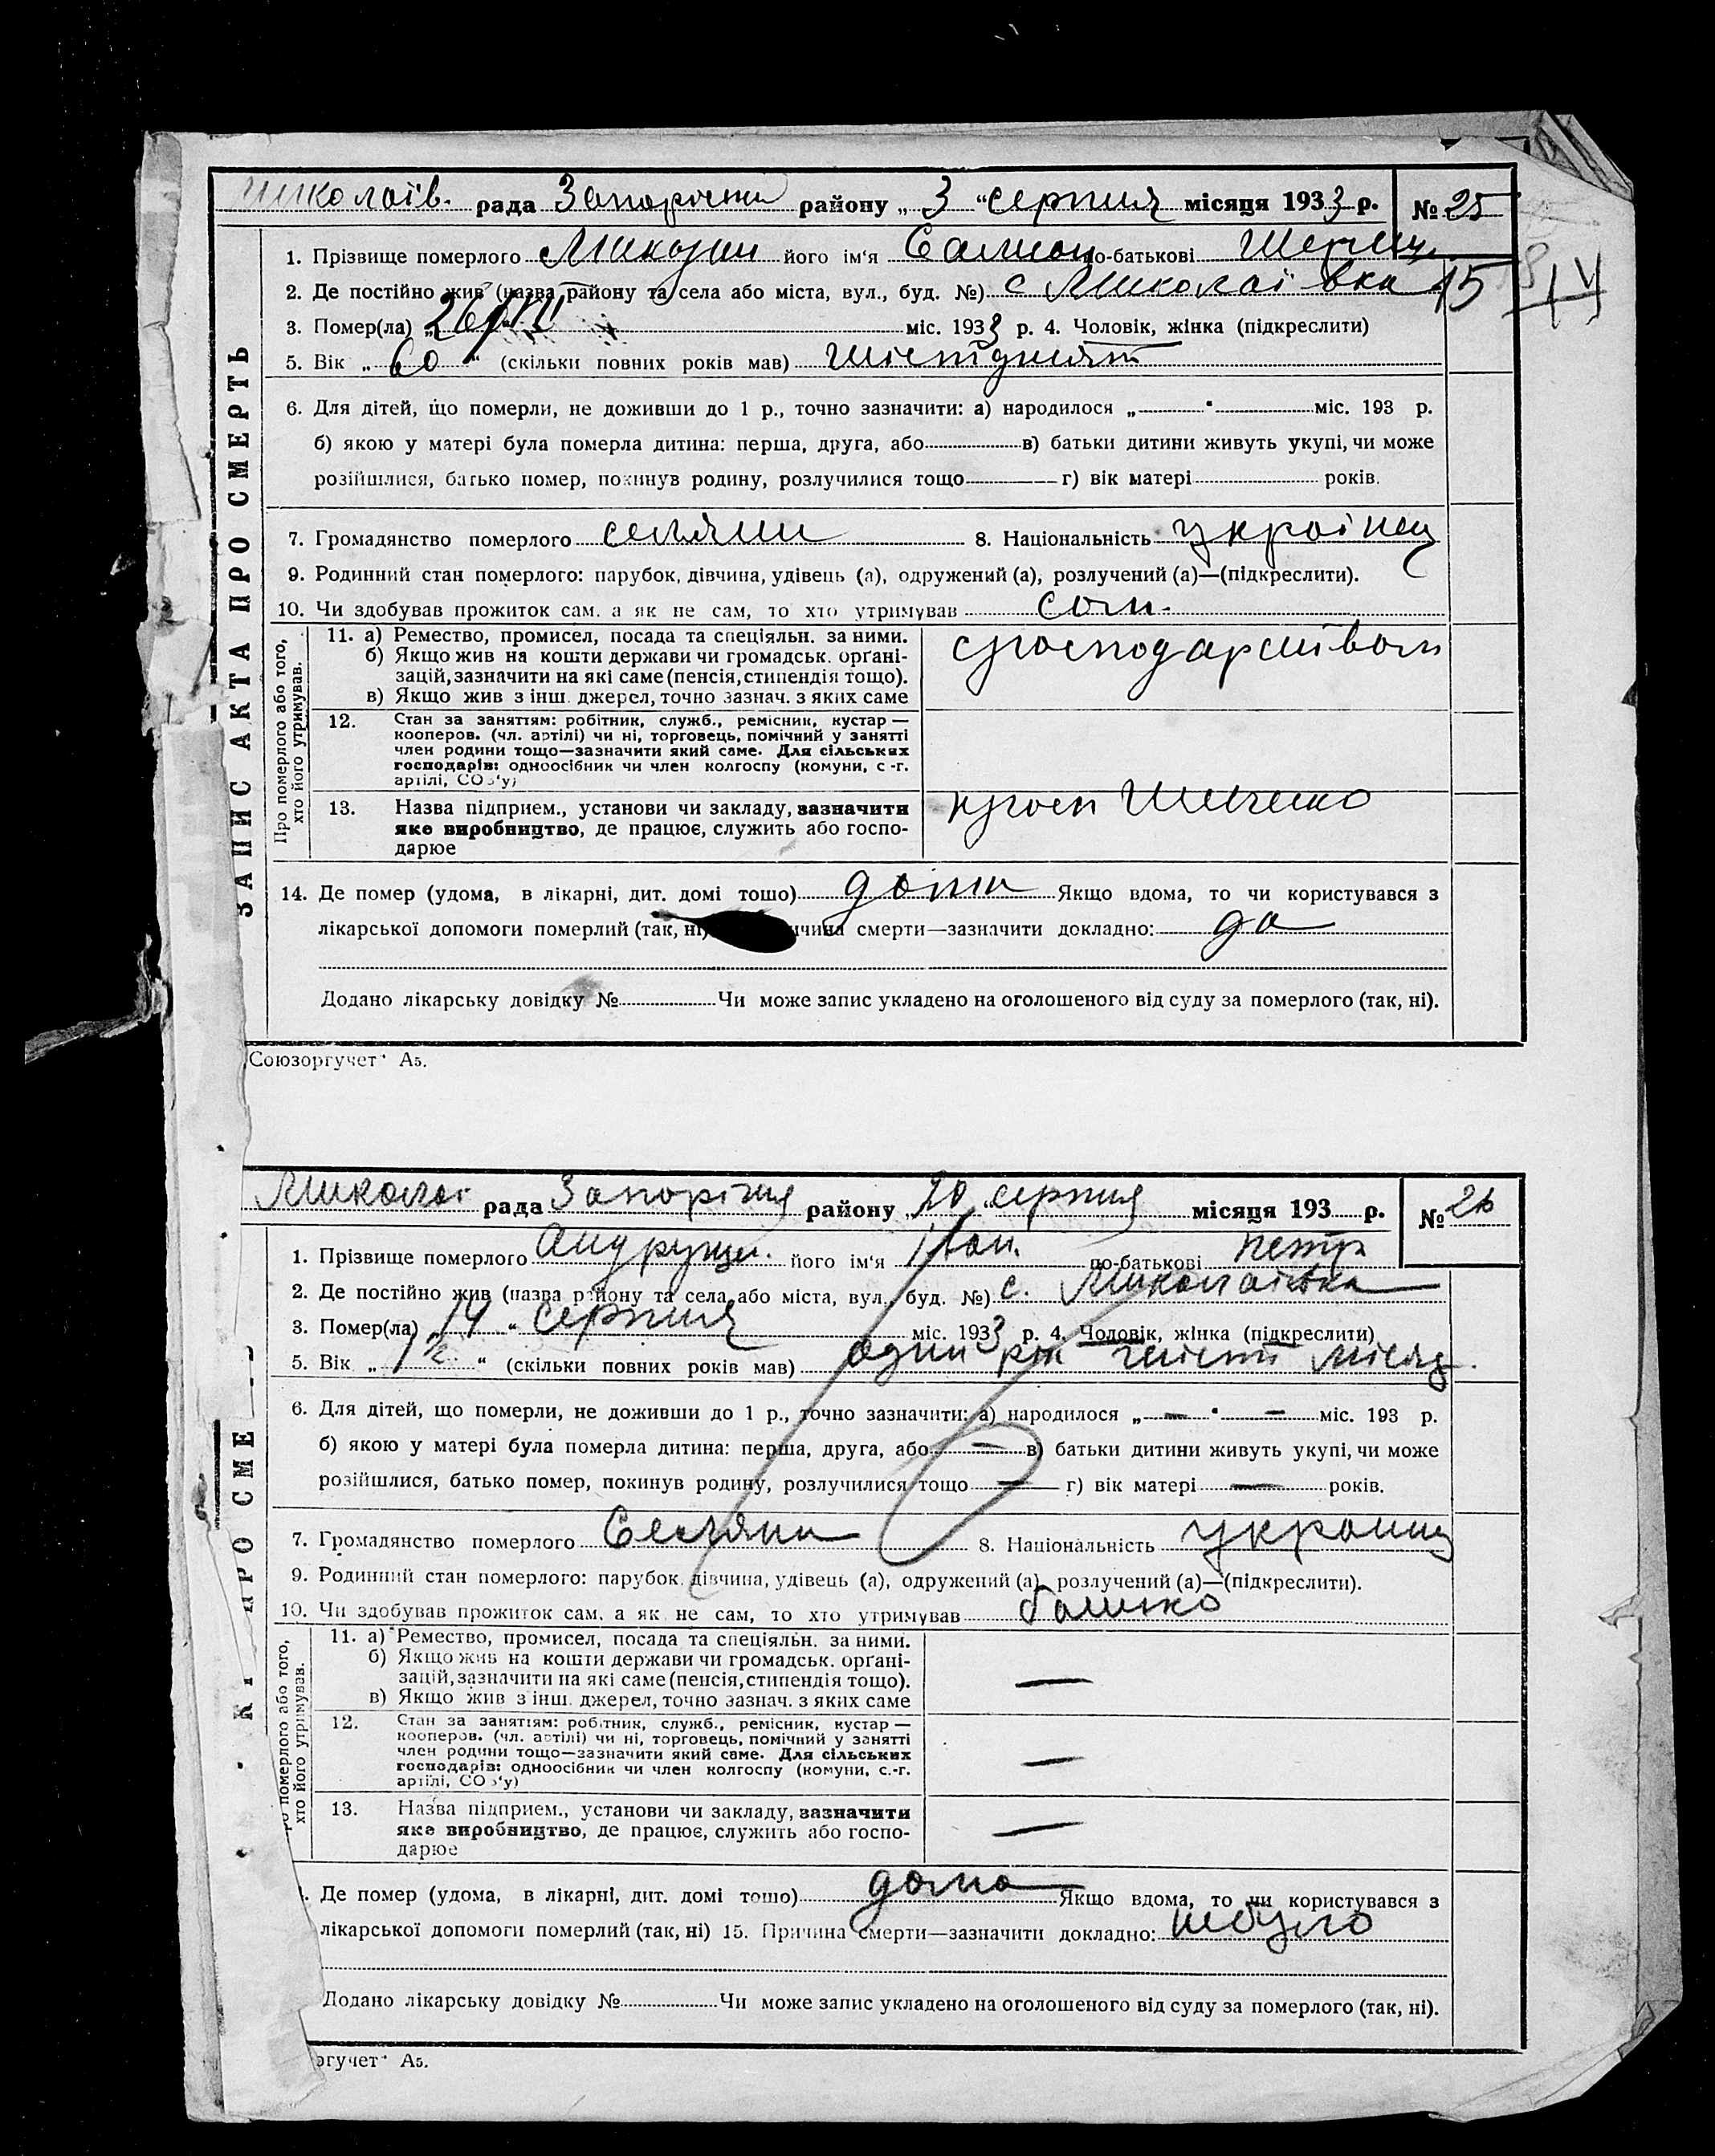 Миколаїв. рада Запоріжжя району „ 3 “ серпня місяця 1933 р. № 25
1. Прізвище померлого його ім‘я по-батькові
2. Де постійно жив (назва району та села або міста, вул., буд. №) с Миколаївка 15
3. Помер(ла) „ 26/VII міс. 1933 р. 4. Чоловік, жінка (підкреслити)
5. Вік „ 60 “ (скільки повних років мав) шістдисят
6. Для дітей, що померли, не доживши до 1 р., точно зазначити: а) народилося „ “ міс. 193 р.
б) якою у матері була померла дитина: перша, друга, або в) батьки дитини живуть укупі, чи може
розійшлися, батько помер, покинув родину, розлучилися тощо г) вік матері років.
7. Громадянство померлого селянин 8. Національність українец
9. Родинний стан померлого: парубок, дівчина, удівець (а), одружений (а), розлучений (а)—(підкреслити).
10. Чи здобував прожиток сам. а як не сам, то хто утримував сам.
11. а) Ремество, промисел, посада та спеціяльн. за ними.
б) Якщо жив на кошти держави чи громадськ. орґані-
зацій, зазначити на які саме (пенсія, стипендія тощо).
в) Якщо жив з інш. джерел, точно зазнач. з яких саме
12. Стан за заняттям: робітник, служб., ремісник, кустар —
кооперов. (чл. артілі) чи ні, торговець, помічний у занятті
член родини тощо—зазначити який саме. Для сільських
господарів: одноосібник чи член колгоспу (комуни, с.-г.
артілі, СОЗ‘у)
13. Назва підприєм., установи чи закладу, зазначити
яке виробництво, де працює, служить або госпо-
дарює
Про померлого або того,
хто його утримував.
14. Де помер (удома, в лікарні, дит. домі тощо) дома Якщо вдома, то чи користувався з
лікарської допомоги померлий (так, ні) смерти—зазначити докладно: да
Додано лікарську довідку № Чи може запис укладено на оголошеного від суду за померлого (так, ні).
ЗАПИС АКТА ПРО СМЕРТЬ
Союзоргучет“ А5.
Миколаї рада Запоріжжя району „ 20 “ серпня місяця 193 р. № 26
1. Прізвище померлого Андрущ. його ім‘я Іван. по-батькові Петр
2. Де постійно жив (назва району та села або міста, вул., буд. №) с. Миколаївка
3. Помер(ла) „ 14 “ серпня міс. 1933 р. 4. Чоловік, жінка (підкреслити)
5. Вік „ “ (скільки повних років мав) один рік шість місяц.
6. Для дітей, що померли, не доживши до 1 р., точно зазначити: а) народилося „ — “ — міс. 193 р.
б) якою у матері була померла дитина: перша, друга, або — в) батьки дитини живуть укупі, чи може
розійшлися, батько помер, покинув родину, розлучилися тощо — г) вік матері — років.
7. Громадянство померлого Селянин 8. Національність украинц
9. Родинний стан померлого: парубок, дівчина, удівець (а), одружений (а), розлучений (а)—(підкреслити).
10. Чи здобував прожиток сам. а як не сам, то хто утримував батько
11. а) Ремество, промисел, посада та спеціяльн. за ними.
б) Якщо жив на кошти держави чи громадськ. орґані-
зацій, зазначити на які саме (пенсія, стипендія тощо).
в) Якщо жив з інш. джерел, точно зазнач. з яких саме
—
12. Стан за заняттям: робітник, служб., ремісник, кустар —
кооперов. (чл. артілі) чи ні, торговець, помічний у занятті
член родини тощо—зазначити який саме. Для сільських
господарів: одноосібник чи член колгоспу (комуни, с.-г.
артілі, СОЗ‘у)
—
13. Назва підприєм., установи чи закладу, зазначити
яке виробництво, де працює, служить або госпо-
дарює
—
померлого або того,
хто його утримував.
Де помер (удома, в лікарні, дит. домі тощо) дома Якщо вдома, то чи користувався з
лікарської допомоги померлий (так, ні) 15. Причина смерти—зазначити докладно: небуло
Додано лікарську довідку № Чи може запис укладено на оголошеного від суду за померлого (так, ні).
ПРО СМЕ
ргучет“ А5.